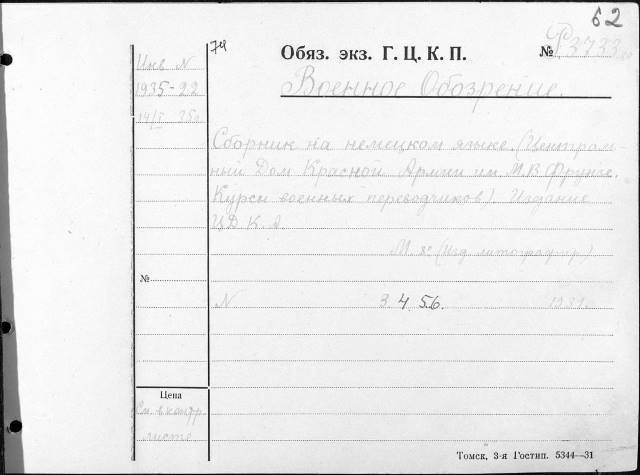 62
74
Обяз. экз. Г. Ц. К. П. № Р3733
Военное Обозрение.
Инв N
1935-22
14/I 35г.
Сборник на немецком языке. (Централь-
ный Дом Красной Армии им. М. В. Фрунзе.
Курсы военных переводчиков). Издание
ЦДКА.
М. 8° (Изд литограф)
№
N 3 4 5 6. 1931г.
Цена
См. в контр.
листе
Томск, 3-я Гостип. 5344—31